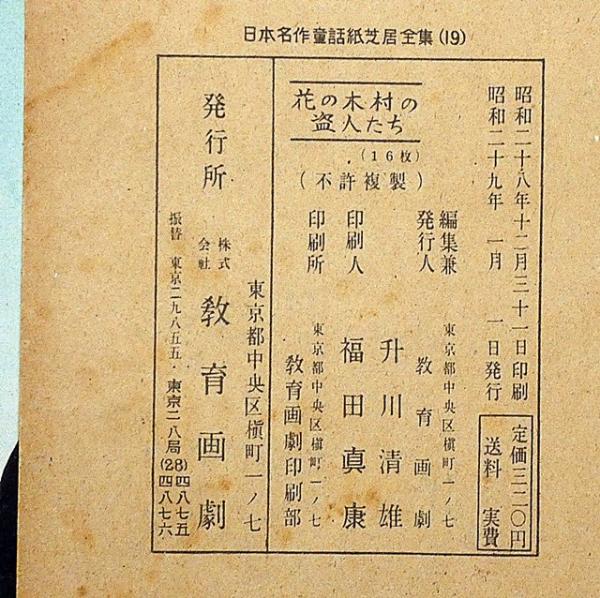 日本名作童話紙芝居全集(19)
昭和二十八年十二月三十一日印刷
昭和二十九年 一月 一日発行
定価三二〇円
送料 実費
花の木村の
盗人たち
(16枚)
(不許複製)
編集兼
発行人
東京都中央区槇町一ノ七
教育画劇
升川清雄
印刷人
福田真康
印刷所
東京都中央区槇町一ノ七
教育画劇印刷部
東京都中央区槇町一ノ七
発行所
株式
会社
教育画劇
振替 東京二九八五五・東京二八局(28)四八七五
四八七六